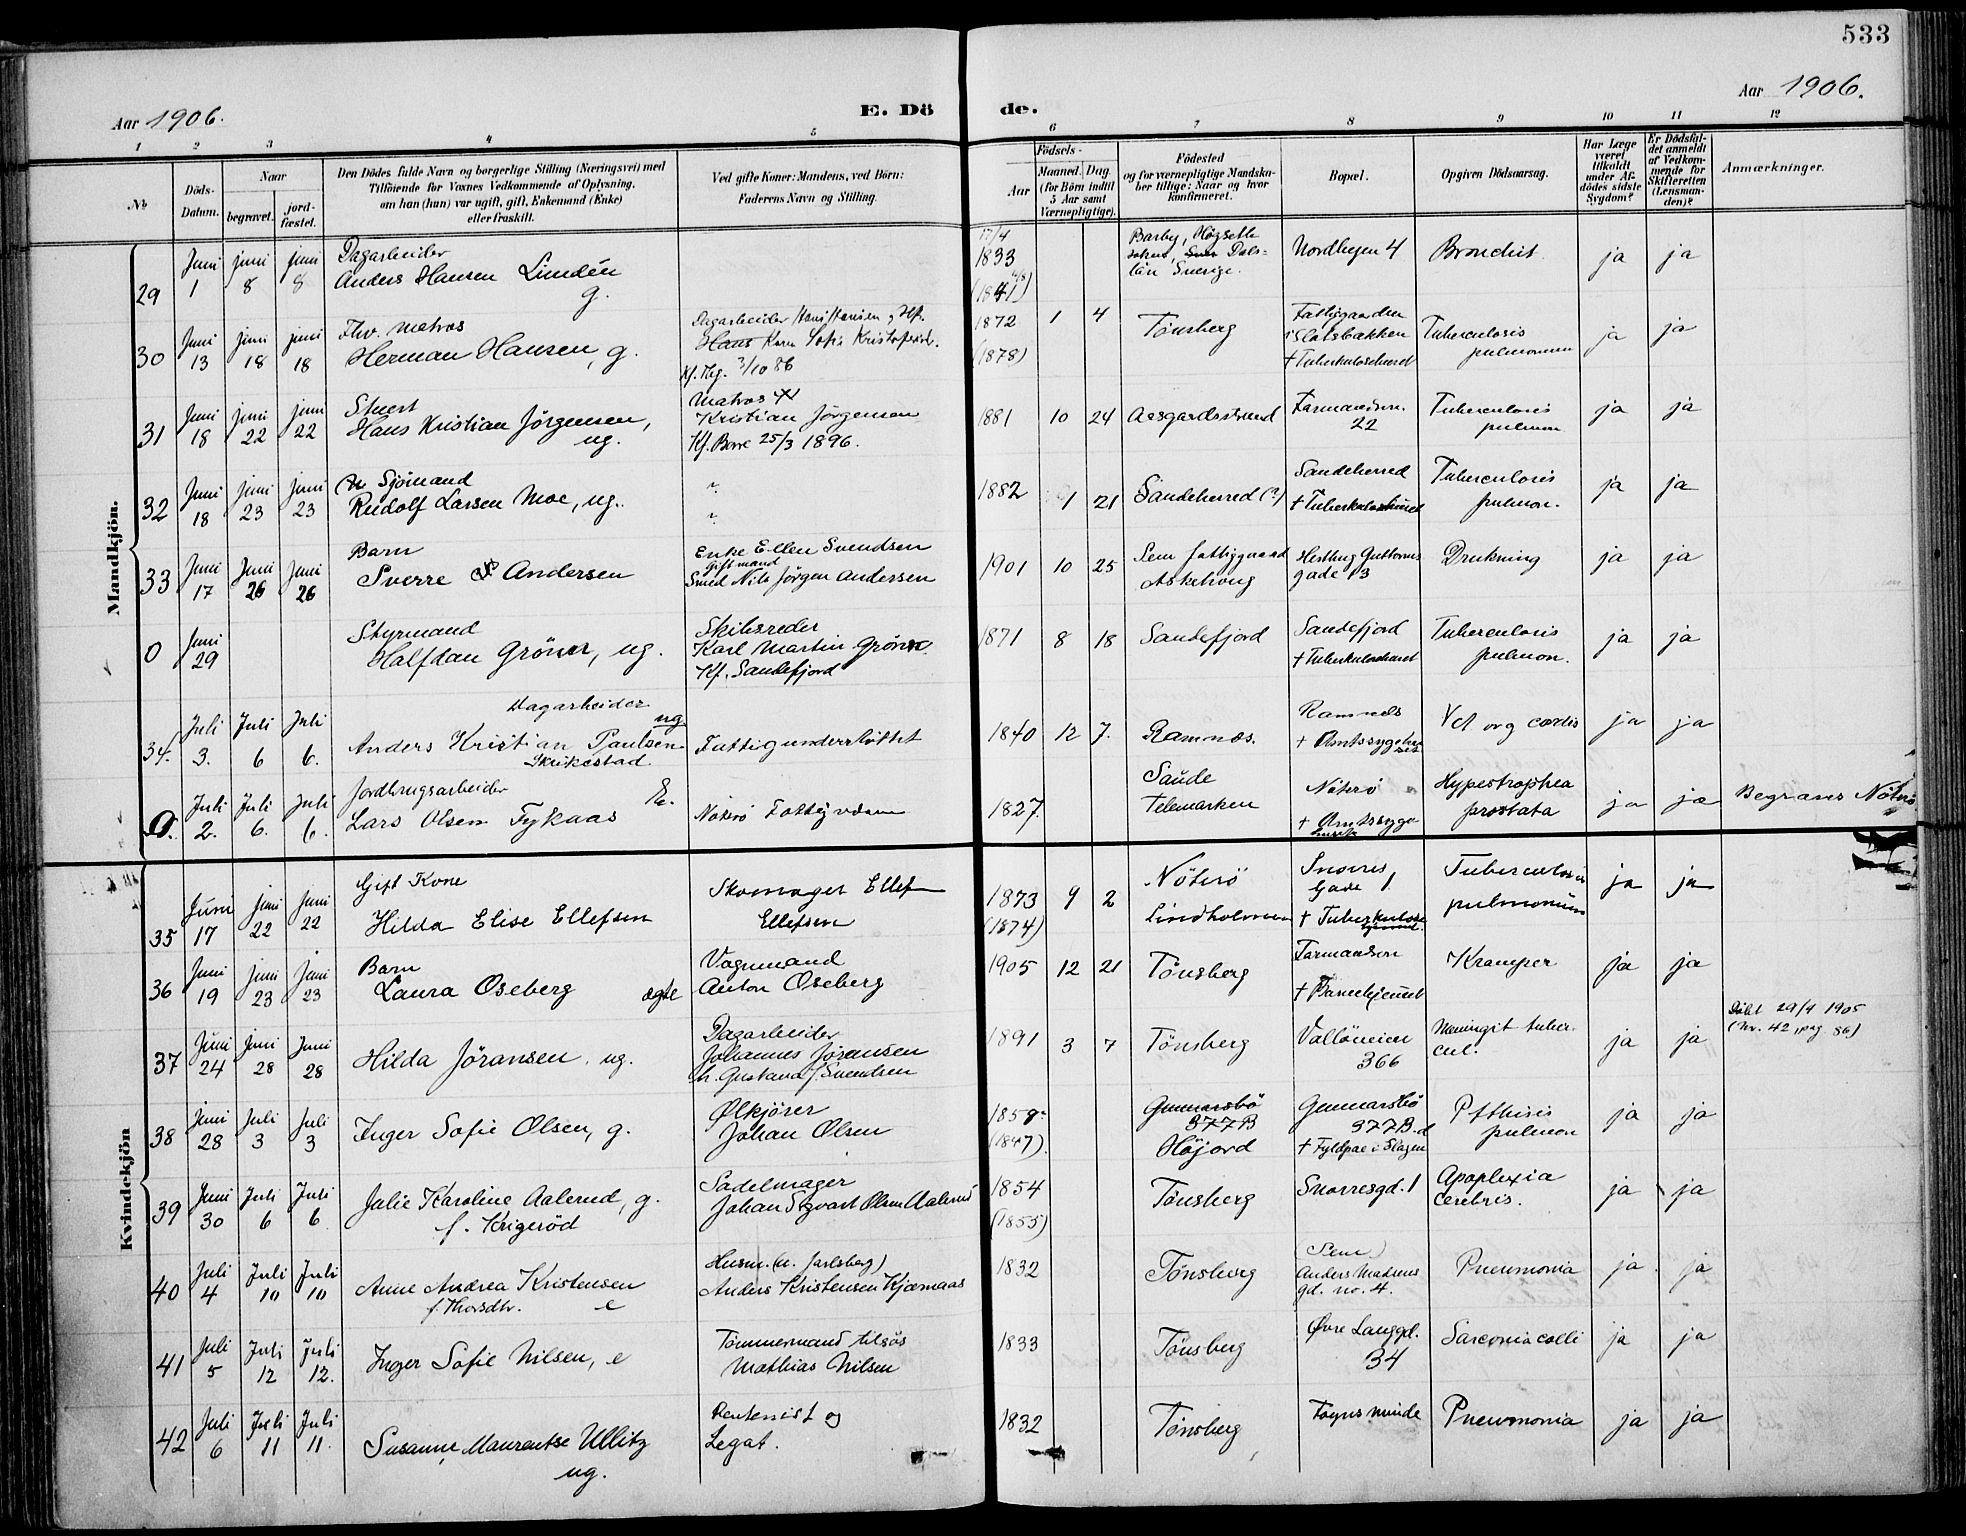 533
Aar 1906.
E. Dö de.
Aar 1906.
1 2 3 4 5 6 7 8 9 10 11 12
No
Döds-Datum.
Naar
begravet.
jord-fæstet.
Den Dödes fulde Navn og borgerlige Stilling (Næringsvei) med
Tilföiende for Voxnes Vedkommende af Oplysning,
om han (hun) var ugift, gift, Enkemand (Enke)
eller fraskilt.
Ved gifte Koner: Mandens, ved Börn:
Faderens Navn og Stilling.
Födsels-
Aar
Maaned. Dag
(for Börn indtil
5 Aar samt
Værnepligtige).
Födested
og for værnepligtige Mandska-
ber tillige: Naar og hvor
konfirmeret.
Bopæl.
Opgiven Dödsaarsag.
Har Læge
været
tilkaldt
under Af-
dödes sidste
Sygdom?
Er Dödsfal-
det anmeldt
af Vedkom-
mende for
Skifteretten
(Lensman-
den)?
Anmærkninger.
Mandkjön.
29 Juni 1 juni 8 juni 8 Dagarbeider
Anders Hansen Lindén g.
17/4 1833 (1841) Sverige. Nordbyen 4 Bronchit. ja ja
30 Juni 13 juni 18 juni 18 Fhv. matros
Herman Hansen, g.
Dagarbeider Hans Hansen
Kf. Tbg. 3/10 86
1872 (1878) 1 4 Tönsberg Fattiggaarden
i Slotsbakken
Tuberculosis
pulmonum ja ja
31 Juni 18 juni 22 juni 22 Stuert
Hans Kristian Jörgensen, ug.
Matros
Kristian Jörgensen
Kf. Borre 25/3 1896.
1881 10 24 Aasgardsstrand Farmandsv. 22 Tuberculosis
pulmon ja ja
32 Juni 18 juni 23 juni 23 Sjömand
Rudolf Larsen Moe, ug.
1882 1 21 Sandeherred (?) Sandeherred Tuberculosis
pulmon. ja ja
33 Juni 17 Juni 26 Juni 26 Barn
Sverre Andersen
Enke Ellen Svendsen
Gift mand
Smed Nils Jörgen Andersen
1901 10 25 Sem fattiggaard
Askehoug
Herthug Guttorms
gade 13 Drukning ja ja
0 Juni 29 Styrmand
Halfdan Gröner, ug.
Skibsreder
Karl Martin Gröner
Kf. Sandefjord
1871 8 18 Sandefjord Sandefjord Tuberculosis
pulmon. ja ja
34. Juli 3. Juli 6 Juli 6. Dagarbeider
Anders Kristian Paulsen ug
Skrikestad
Fattigunderstöttet
1840 12 7. Ramnes. Ramnes
+ Amtssygehuset
Vit org cordis ja ja
0. Juli 2. Juli 6. Juli 6. Jordbrugsarbeider
Lars Olsen Fykaas E.
Nöterö Fattigvæsen
1827. Saude
Telemarken
Nöterö
Hypertrophia
prostata ja ja Begraves Nöterö
Kvindekjön
35 Juni 17 juni 22 juni 22 Gift Kone
Hilda Elise Ellefsen
Skomager Ellef
Ellefsen
1873 (1874) 9 2 Nöterö
Lindholmen
Snorres
Gade 1.
Tuberculosis
pulmonum ja ja
36 Juni 19 juni 23 juni 23 Barn
Laura Oseberg ægte
Vognmand
Anton Oseberg
1905 12 21 Tönsberg Farmandsv
+ Barnehjemmet
Kramper ja ja
Döbt 29/4 1905
(Nr. 42, pag. 86)
37 Juni 24 juni 28 Juni 28 Hilda Jöransen. ug.
Dagarbeider
Johannes Jöransen
h. Gustava f. Svendsen
1891 3 7 Tönsberg Vallöveien
366 Meningit tuber-
cul. ja ja
38 Juni 28 Juli 3 Juli 3 Inger Sofie Olsen, g.
Ølkjörer
Johan Olsen
1859 (1847). Gunnarsbö
377B
Höjord
Gunnarsbö
377B
Pfthisis
pulmon ja ja
39 Juni 30 Juli 6 Juli 6 Julie Karoline Aalerud, g.
f. Krigeröd
Sadelmager
Johan Sigvart Olsen Aalerud
1854 (1855) Tönsberg Snorresgd. 1 Apoplexia
Cerebris. ja ja
40 Juli 4 Juli 10 Juli 10 Anne Andrea Kristensen
f. Thorsdtr. e
Husm. (u. Jarlsberg)
Anders Kristensen Kjærnaas
1832 Tönsberg (Sem)
Anders Madsens
gd. no. 4. Pneumonia ja ja
41 Juli 5 Juli 12 Juli 12. Inger Sofie Nilsen, e
Tömmermand tilsjös
Mathias Nilsen
1833 Tönsberg Øvre Langgd.
34 Sarcomia colli ja ja
42 Juli 6 Juli 11 Juli 11. Susanne Maurentse Ullitz
ug.
Rentenist og
Legat.
1832 Tönsberg Foynsminde Pneumonia ja ja